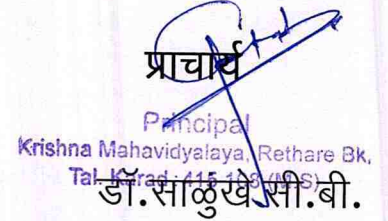 प्राचार्य
Principal
Krishna Mahavidyalaya, Rethare Bk,
Tal. Karad. 415 108 (M.S)
डॉ.साळुंखे सी.बी.